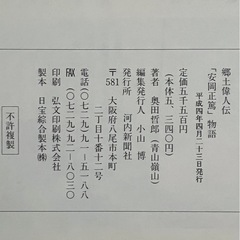 郷土偉人伝
「安岡正篤」物語
平成四年四月二十三日発行
定価五千五百円
(本体五、三四〇円)
著者 奥田哲郎(青山嶺山)
編集発行人 小山 博
発行所 河内新聞社
〒581 大阪府八尾市本町
二丁目十番十二号
電話(〇七二九)九一―五一八八
FAX(〇七二九)九二―八〇三〇
印刷 弘文印刷株式会社
製本 日宝綜合製本㈱
不許複製